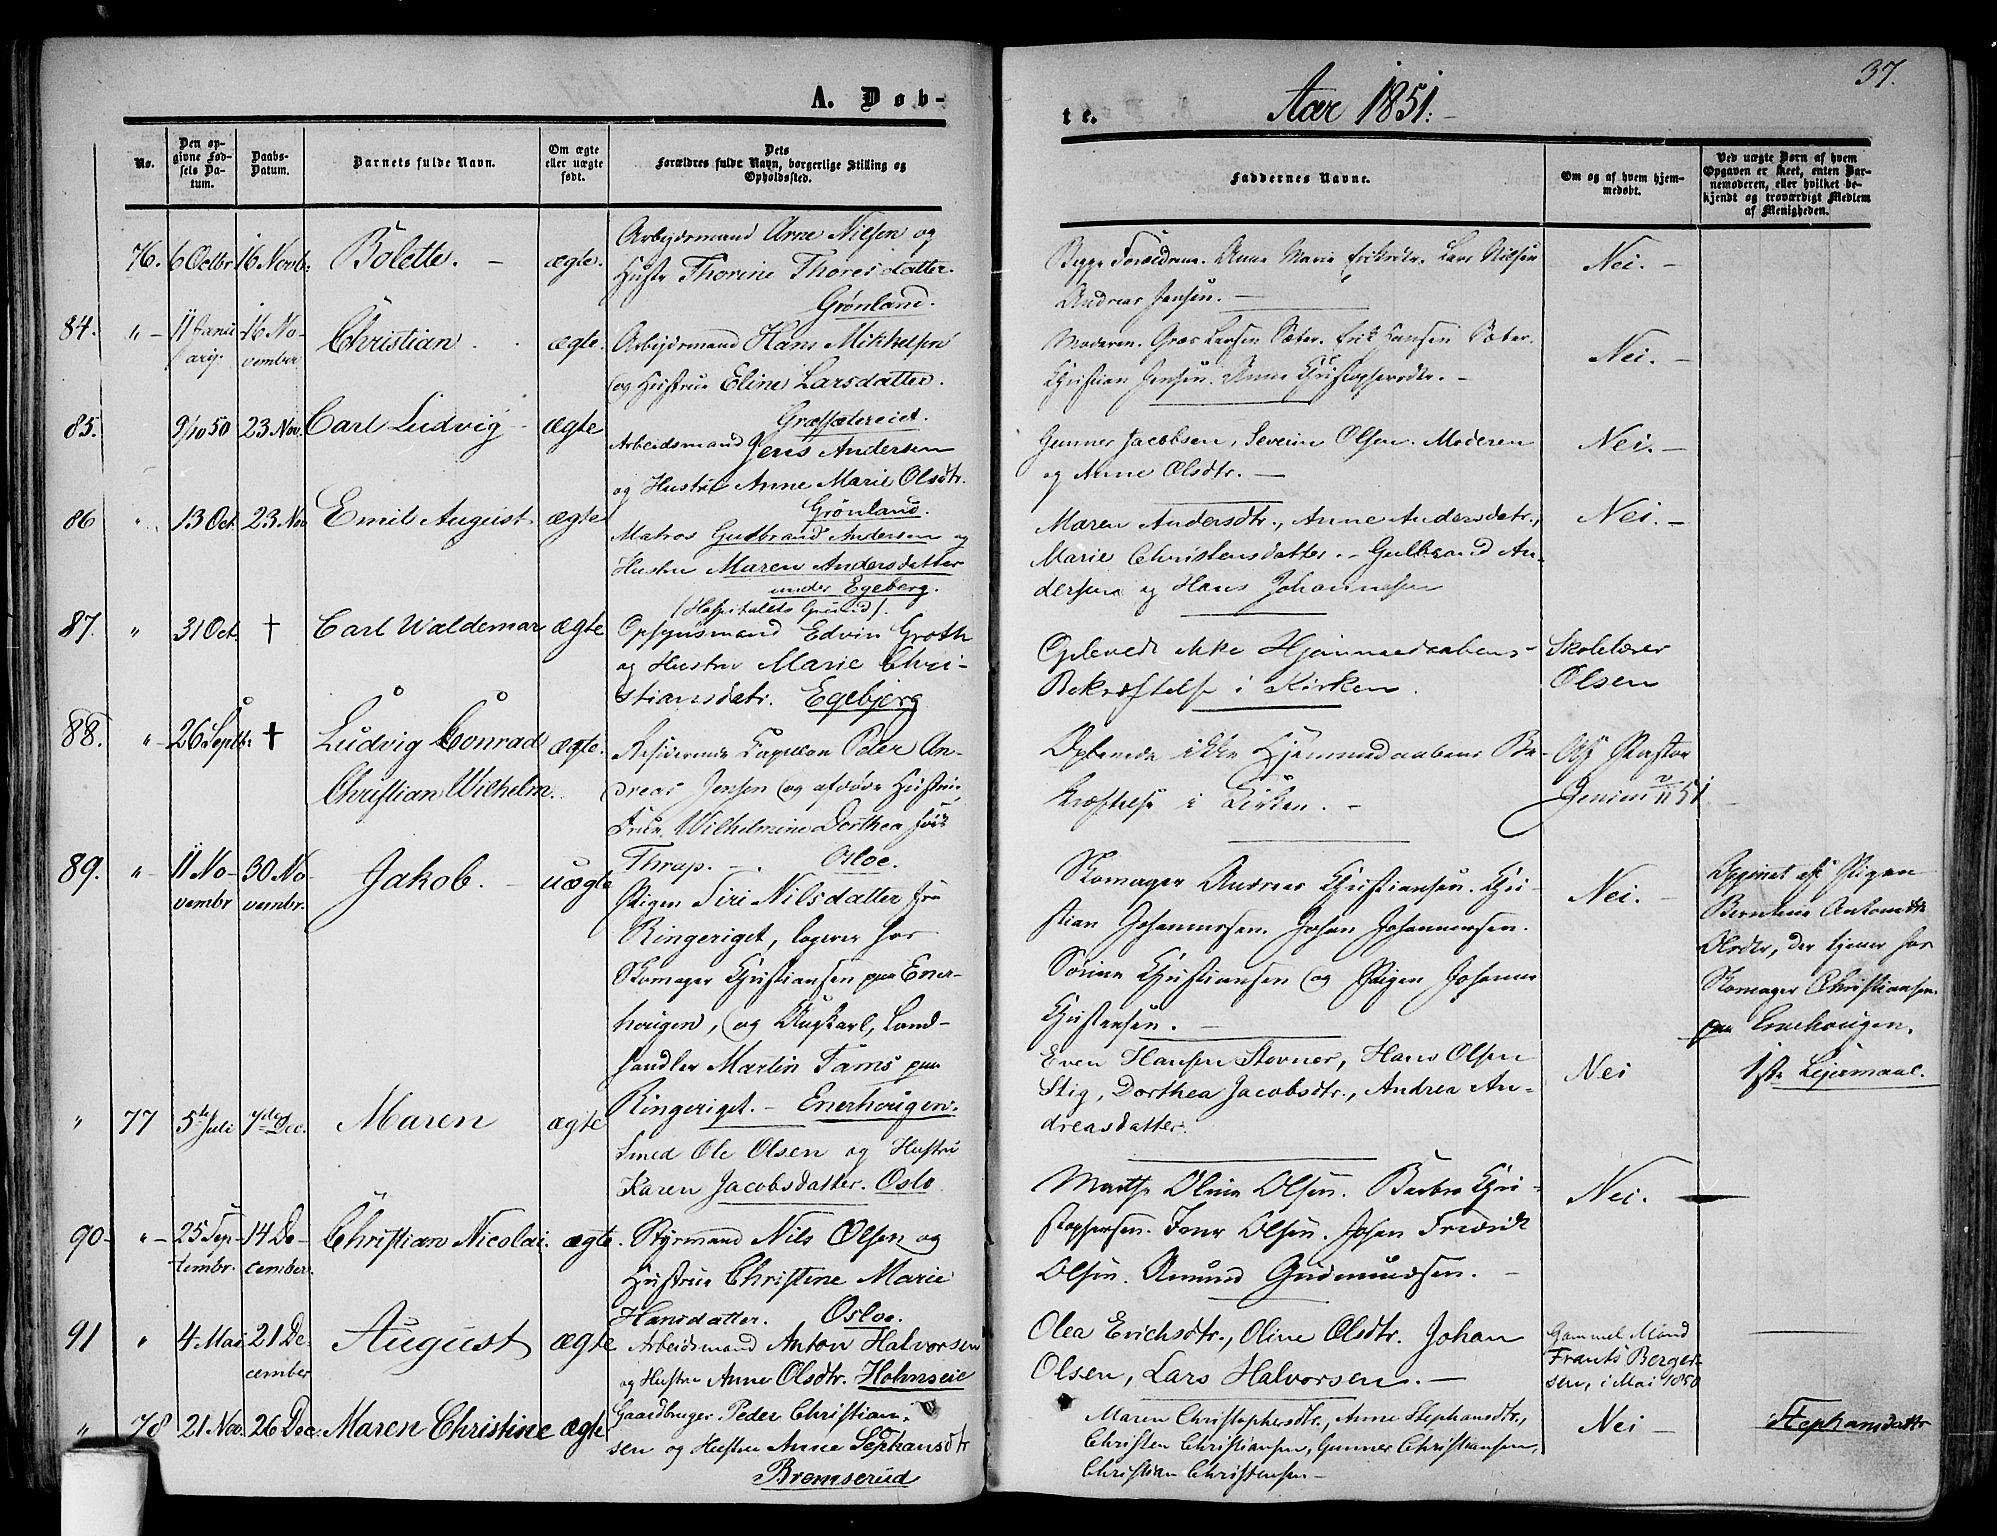 37.
A. Døb-
te.
Aar 1851.
No.
Den op-
givne Fød-
sels Da-
tum.
Daabs-
Datum.
Barnets fulde Navn.
Om ægte
eller uægte
født.
Dets
Forældres fulde Navn, borgerlige Stilling og
Opholdssted.
Faddernes Navne.
Om og af hvem hjem-
medøbt.
Ved uægte Børn af hvem
Opgaven er skeet, enten Bar-
nemoderen, eller hvilket be-
kjendt og troværdigt Medlem
af Menigheden.
76. 6 Octbr. 16 Novb. Bolette. – ægte.
Arbejdsmand Arne Nielsen og
Hustr Thorine Thoresdatter.
Grønland.
Begge Forældrene. Anne Marie Eriksdtr. Lars Nielsen
Andreas Jensen. –
Nei. –
84. " – 11 Janu-
arij. 16 No-
vember Christian. ægte.
Arbejdsmand Hans Mikkelsen
og Hustrue Eline Larsdatter.
Græssætereiet.
Moderen. Lars Larsen Sæter. Erik Hansen Sæter.
Christian Jensen. Anne Christophersdtr. –
Nei. –
85. 9/10 50 23 Nov. Carl Ludvig – ægte
Arbeidsmand Jens Andersen
og Hustru Anne Marie Olsdtr.
Grønland.
Gunner Jacobsen, Severin Olsen. Moderen
og Anne Olsdtr. –
Nei. –
86 " 13 Oct. 23 Nov Emil August ægte
Matros Gudbrand Andersen og
Hustru Maren Andersdatter
under Egeberg.
(Hospitalets Grund).
Maren Andersdtr., Anne Andersdatr.,
Marie Christensdatter. – Gulbrand An-
dersen og Hans Johannesen
Nei. –
87. " 31 Oct. † Carl Waldemar ægte
Opsynsmand Edvin Groth
og Hustru Marie Chri-
stiansdatr. Egebjerg
Oplevede ikke Hjemmedaabens-
Bekræftelse i Kirken.
Skolelærer
Olsen
88. " 26 Septbr. † Ludvig Conrad
Christian Wilhelm. ægte.
Residerende Capellan Peter An-
dreas Jensen og afdøde Hustru,
Frue Wilhelmine Dorthea
Thrap. – Osloe.
Oplevede ikke Hjemmedaabens Be-
kræftelse i Kirken. –
Pastor
Jensen 51
89. " – 11 No-
vembr 30 No-
vembr. Jakob. – uægte
Pigen Siri Nilsdatter fra
Ringeriget, logerer hos
Skomager Christiansen paa Ener-
hougen, og Ungkarl, Land-
handler Martin Fams paa
Ringeriget. – Enerhougen.
Skomager Andreas Christiansen. Chri-
stian Johannessen. Johan Johannessen.
Sørine Christiansen og Pigen Johanne
Christensen. –
Nei. –
Opgivet af Pigen
Berntine Antonette
Olsdtr, der tjener hos
Skomager Christiansen
paa Enerhougen.
1ste Lejermaal.
" 77 5te Juli 7de Dec. Maren ægte
Smed Ole Olsen og Hustru
Karen Jacobsdatter. Oslo
Even Hansen Stovner, Hans Olsen
Stig, Dorthea Jacobsdtr., Andrea An-
dreasdatter.
Nei
90 – " – 25 Sep-
tembr. 14 De-
cember. Christian Nicolai. ægte.
Styrmand Nils Olsen og
Hustrue Christine Marie
Hansdatter. Osloe.
Marthe Oline Olsen. Barbra Chri-
stophersen. Olsen. Johan Fredrik
Olsen. Amund Gudmundsen. –
Nei.
91 " 4 Mai 21 De-
cember August ægte
Arbeidsmand Anton Halvorsen
og Hustru Anne Olsdtr. Holmseie
Olea Erichsdtr., Oline Olsdtr. Johan
Olsen, Lars Halvorsen. –
Gammel Mand
Frants Berger-
sen, i Mai 1850
" 78 21 Nov. 26 Dec. Maren Christine ægte
Gaardbruger Peder Christian-
sen og Hustru Anne Sephansdtr
Bremserud
Maren Christophersdtr., Anne Stephansdtr.,
Christen Christiansen, Gunner Christiansen,
Christian Christensen –
Nei –
Stephansdattr